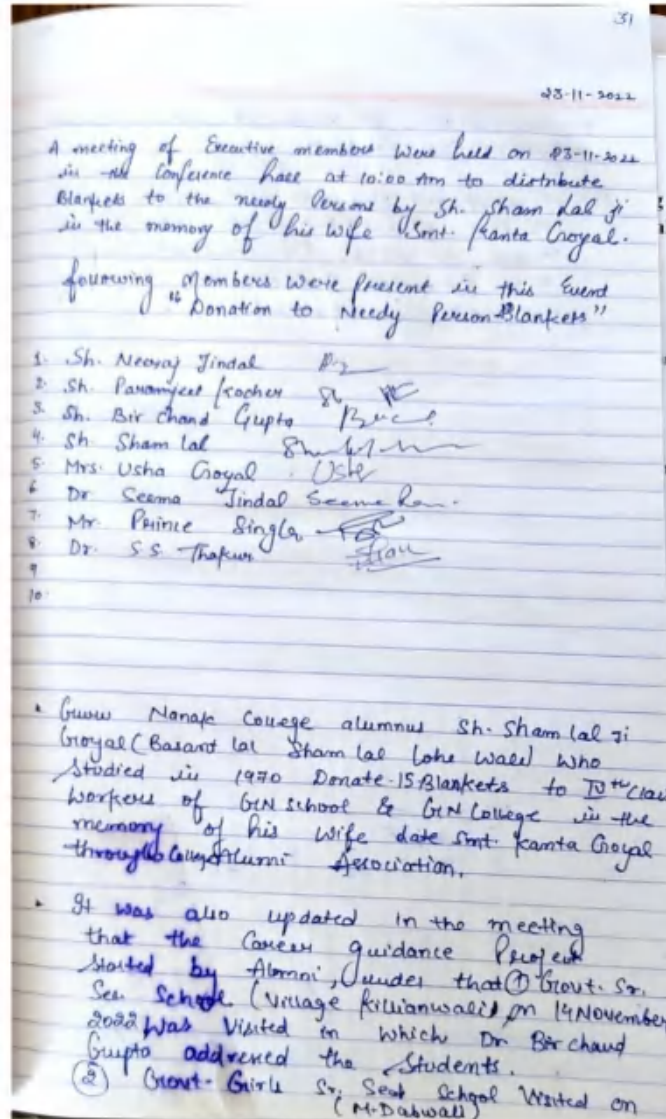 31
23-11-2022
A meeting of Executive members were held on 23-11-2022
in the Conference hall at 10:00 Am to distribute
Blankets to the needy Persons by Sh. Sham Lal ji
in the memory of his wife Smt. Kanta Goyal.
following Members were present in this Event
"Donation to Needy Person-Blankets"
1. Sh. Neeraj Jindal
2. Sh. Paramjeet Kocher
3. Sh. Bir Chand Gupta
4. Sh. Sham lal
5. Mrs. Usha Goyal Usha
6 Dr Seema Jindal Seema
7. Mr. Prince Singla
8. Dr. S.S. Thakur
9
10.
• Guru Nanak College alumnus Sh. Sham lal ji
Goyal (Basant lal Sham lal Lohe wale) who
studied in 1970 Donate 15 Blankets to IV th Class
workers of GN School & GN College in the
memory of his wife date Smt. Kanta Goyal
through College Alumni Association.
• It was also updated in the meeting
that the Career guidance Project
started by Alumni, under that ① Govt. Sr.
Sec. School (Village Killianwali) on 14 November
2022 was visited in which Dr Bir chand
Gupta addressed the Students.
② Govt- Girls Sr. School Visited on
(M. Dabwali)